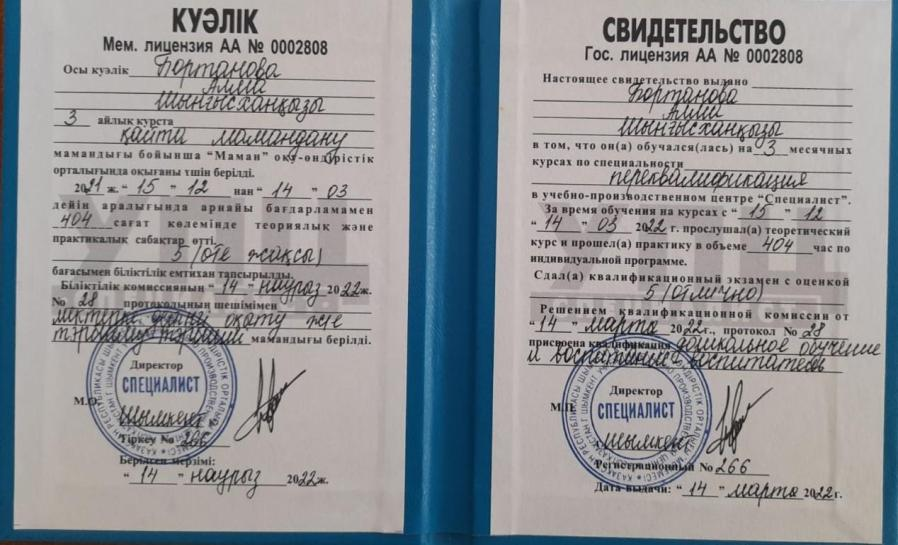 КУӘЛІК
Мем. лицензия АА № 0002808
Осы куәлік Бортанова
Алма
Шыңғысханқызы
3 айлық курста
қайта мамандану
мамандығы бойынша “Маман” оқу-өндірістік
орталығында оқығаны үшін берілді.
2021 ж. “ 15 ” 12 нан “ 14 ” 03
дейін аралығында арнайы бағдарламамен
404 сағат көлемінде теориялық және
практикалық сабақтар өтті.
5 (өте жақсы)
бағасымен біліктілік емтихан тапсырылды.
Біліктілік комиссиянын “ 14 ” наурыз 2022ж.
№ 28 протоколының шешімімен
мектепке дейінгі оқыту және
тәрбиелеу тәрбиеші мамандығы берілді.
Директор
СПЕЦИАЛИСТ
М.О.
Шымкент
Тіркеу № 266
Берілген мерзімі:
“ 14 ” наурыз 2022ж.
СВИДЕТЕЛЬСТВО
Гос. лицензия АА № 0002808
Настоящее свидетельство выдано
Бортанова
Алма
Шыңғысханқызы
в том, что он(а) обучался(лась) на 3 месячных
курсах по специальности
переквалификация
в учебно-производственном центре “Специалист”.
За время обучения на курсах с “ 15 ” 12
“ 14 ” 03 2022 г. прослушал(а) теоретический
курс и прошел(а) практику в объеме 404 час по
индивидуальной программе.
Сдал(а) квалификационный экзамен с оценкой
5 (отлично)
Решением квалификационной комиссии от
“ 14 ” марта 2022г., протокол № 28
присвоена квалификация дошкольное обучение
и воспитание воспитатель
Директор
СПЕЦИАЛИСТ
М.П.
Шымкент
Регистрационный № 266
Дата выдачи: “ 14 ” марта 2022г.